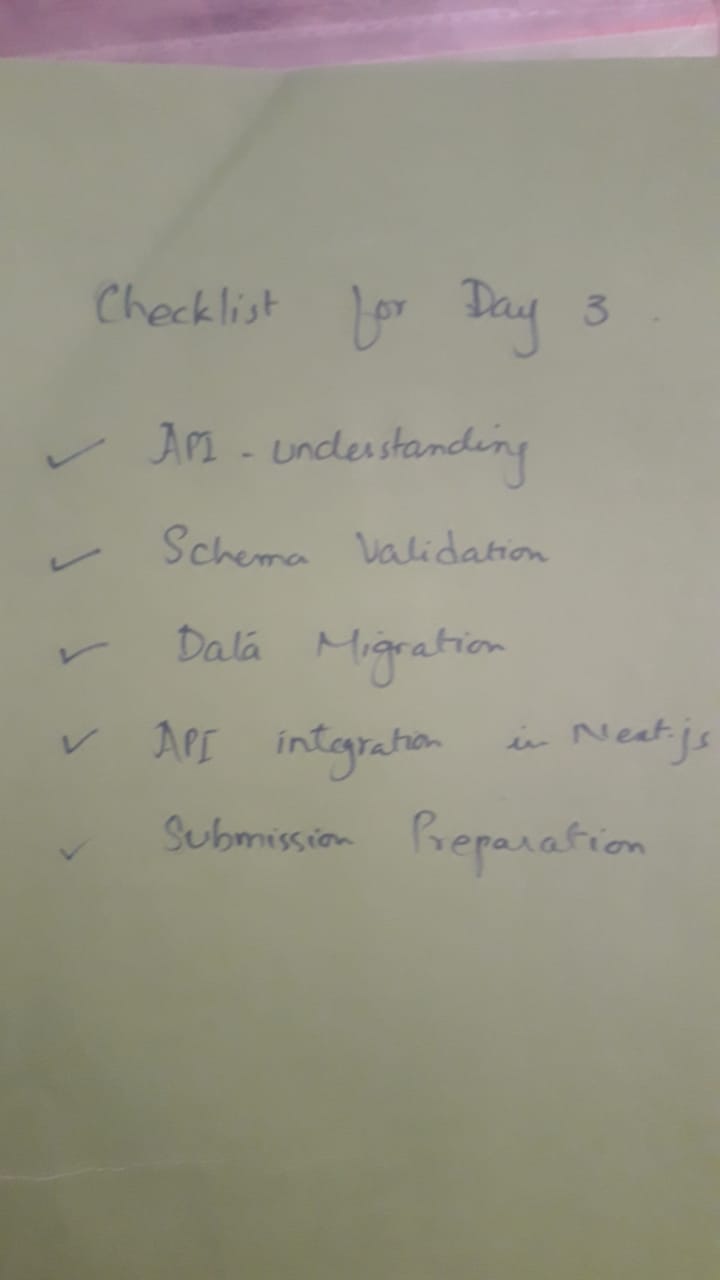 Checklist for Day 3.
✓ API - understanding
✓ Schema Validation
✓ Data Migration
✓ API integration in Next.js
✓ Submission Preparation